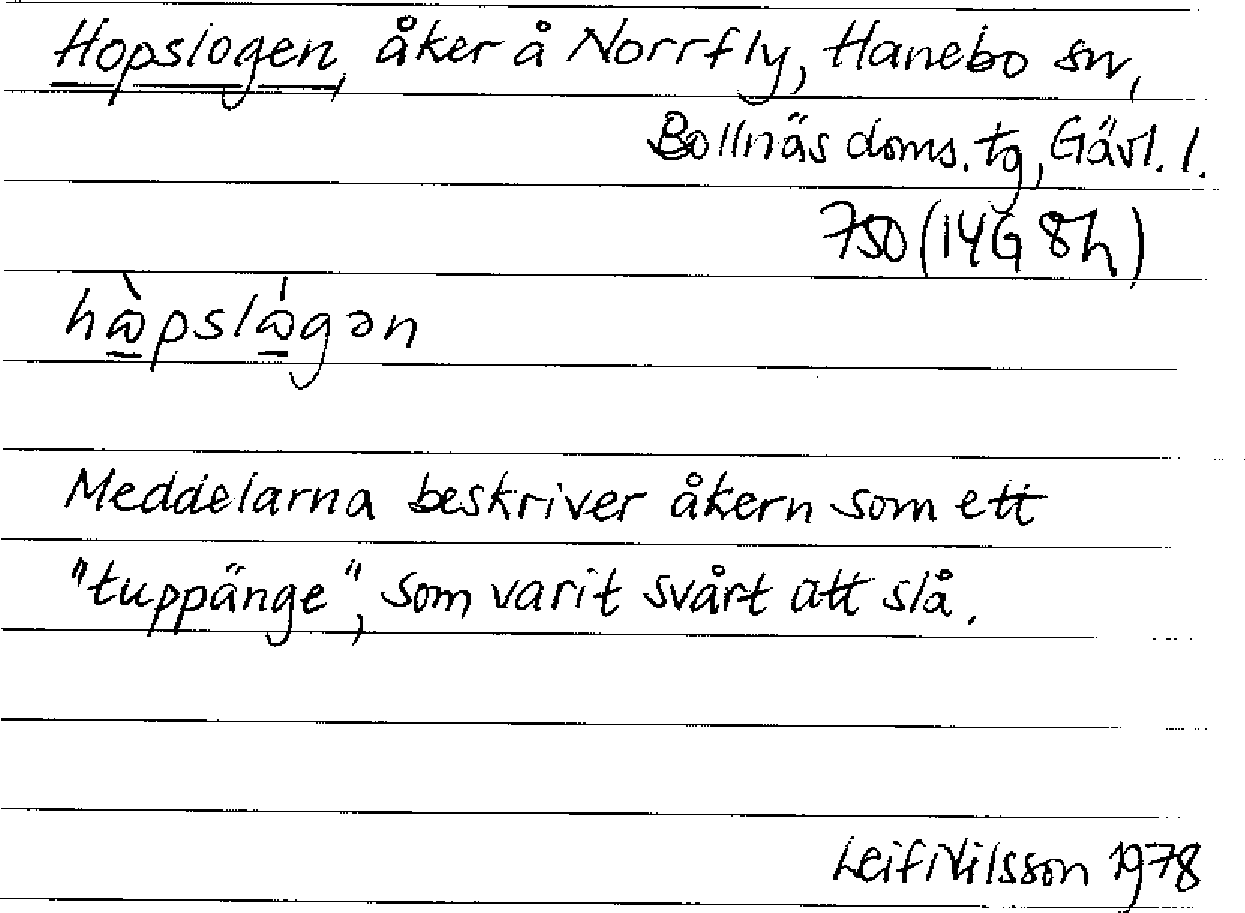 Hopslogen, åker å Norrfly, Hanebo sn,
Bollnäs doms. tg, Gävl. l.
750 (14G 8h)
hὼpslώgən
Meddelarna beskriver åkern som ett
"tuppänge", som varit svårt att slå.
Leif Nilsson 1978